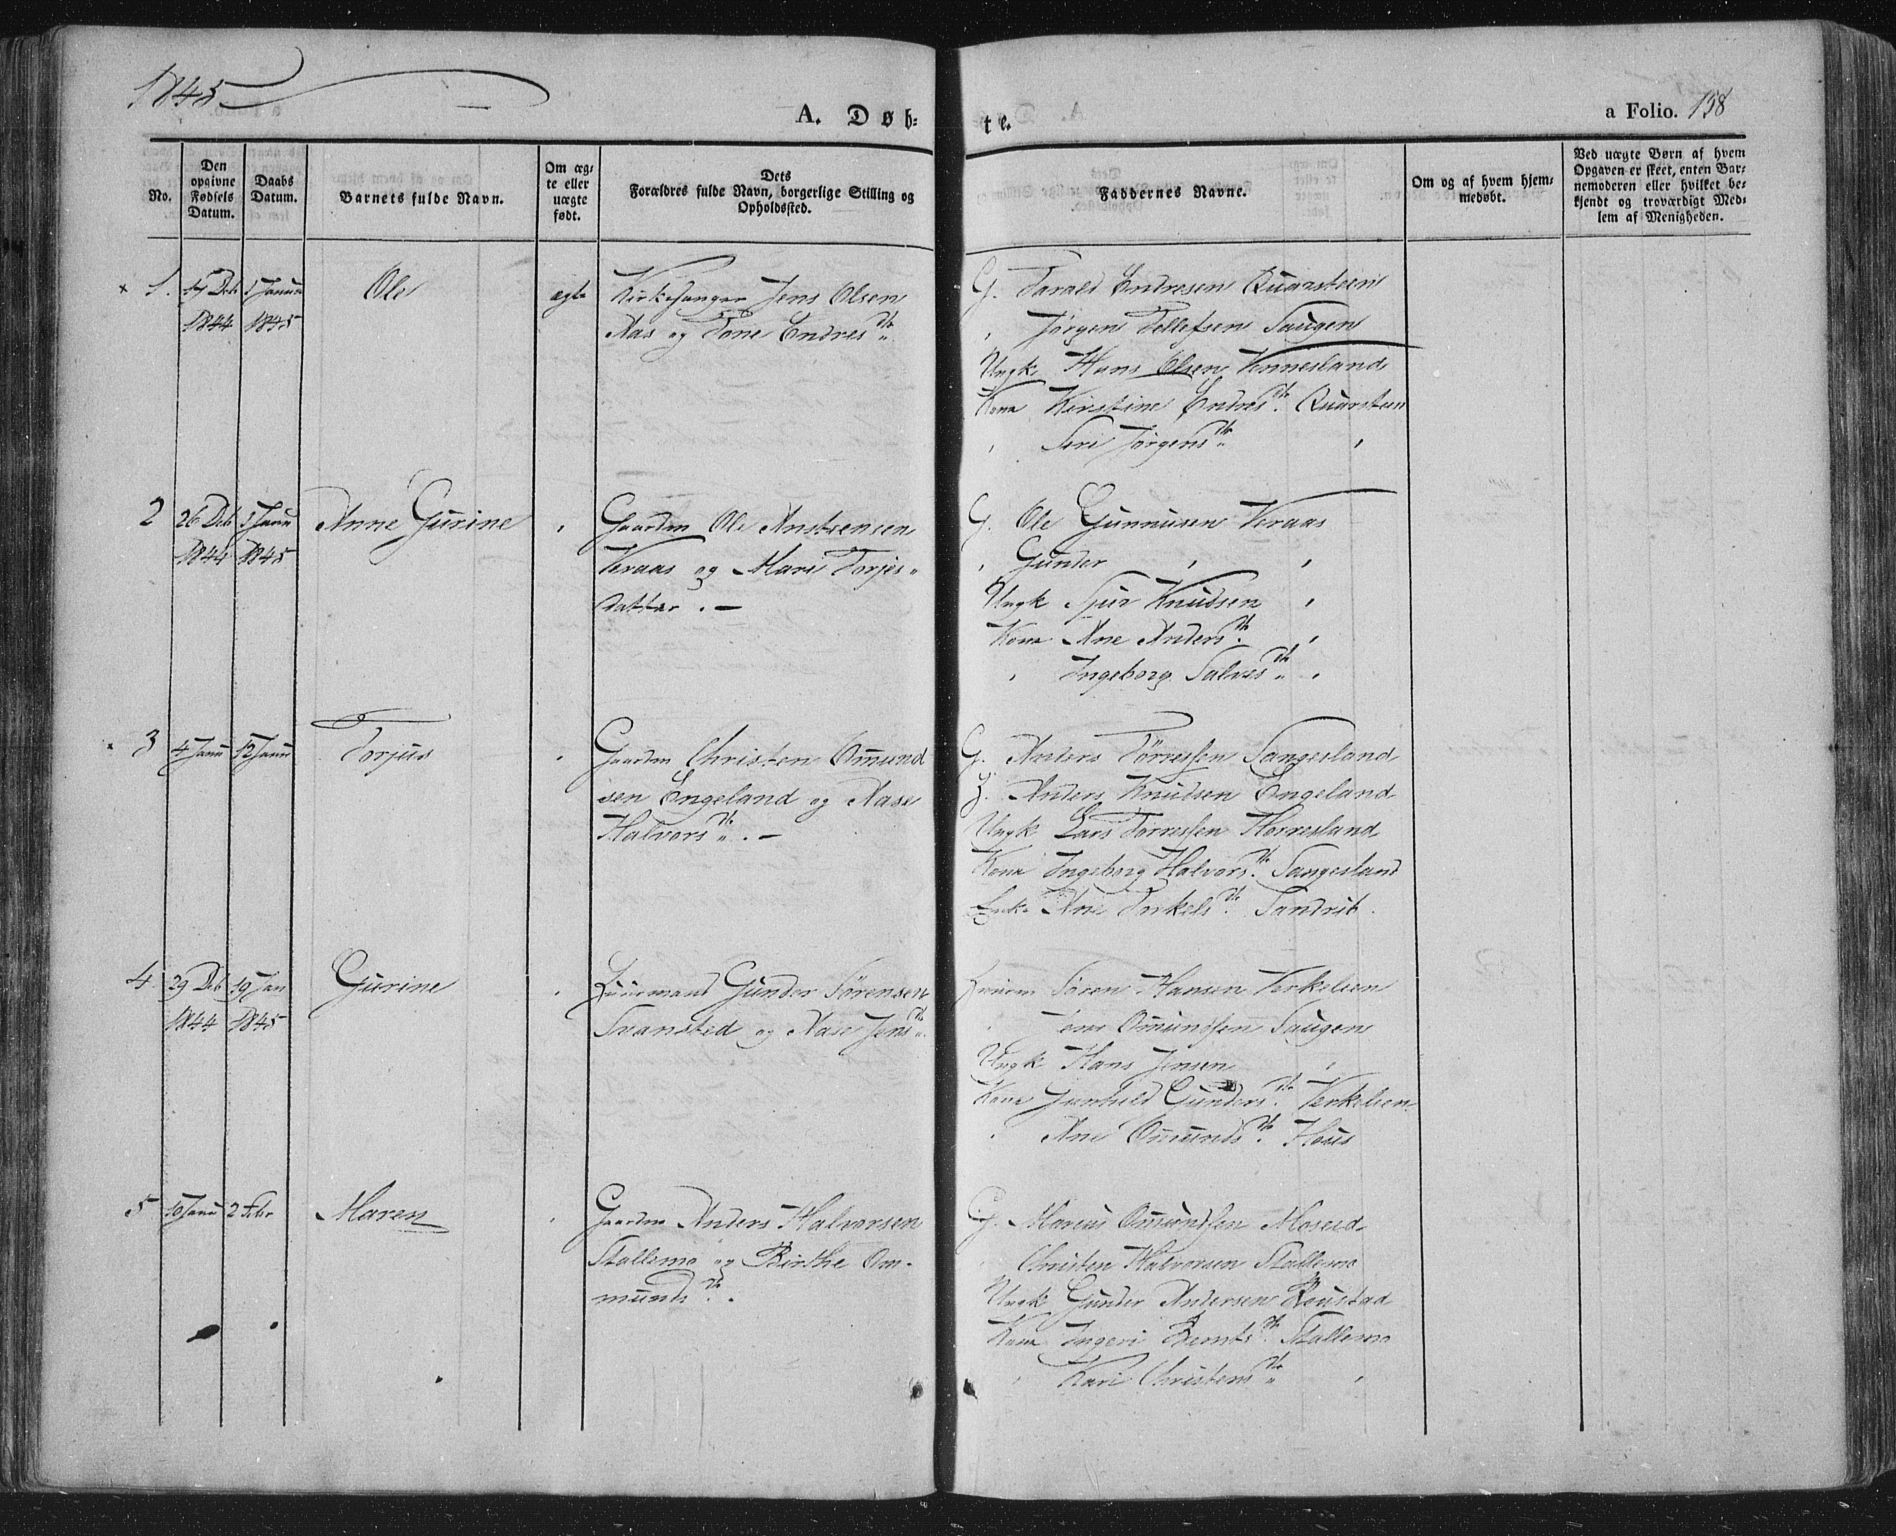 1845
A. Døb-
te.
a Folio. 158
No.
Den
opgivne
Fødsels
Datum.
Daabs
Datum.
Barnets fulde Navn.
Om æg-
te eller
uægte
født.
Dets
Forældres fulde Navn, borgerlige Stilling og
Opholdssted.
Faddernes Navne.
Om og af hvem hjem-
medøbt.
Ved uægte Børn af hvem
Opgaven er skeet, enten Bar-
nemoderen eller hvilket be-
kjendt og troværdigt Med-
lem af Menigheden.
1. Deb 1 Januar Ole ægte Kirkesanger Jens Olsen
1844 1845 Aas og Tone Endresdtr.
G. Tarald Endresen Quarsteen
" Jørgen Tellefsen Saugen
Ungk Hans Olsen Vennesland
Kona Kirstine Endresdtr. Quarsteen
" Siri Jørgensdtr. "
2 26 Deb Janu Anne Gurine " Gaardm Ole Anstensen
1844 1845 Keraas og Mari Torjus-
datter. -
G. Ole Gunnusen Keraas
" Gunder " "
Ungk Sjur Knudsen "
Kona Ane Andersdtr. "
" Ingeborg Salvesdtr. "
3 4 Janu 12 Janu Torjus " Gaardm Christen Omund
sen Engeland og Aase
Halvorsdtr. -
G. Anders Tørressen Sangesland
G. Anders Knudsen Engeland
Ungk Lars Tørressen Horresland
Kona Ingeborg Halvorsdtr. Sangesland
Enke Ane Torkelsdtr.
4 29 Deb 19 Jan Gurine " Huusmand Gunder Sørensen
1844 1845 Svansted og Aase Jensdtr.
Huusm Søren Hansen Verkelien
" Omundsen Saugen
Ungk Hans Jensen "
Kona Gunhild Gundersdtr. Verkelien
" Ane Omundsdtr. Hous
5 10 Janu 2 Febr Maren " Gaardm Anders Halvorsen
Stallemo og Birthe Om-
mundsdtr.
G. Marius Omundsen Moseid
" Christen Halvorsen Stallemo
Ungk Gunder Andersen Roustad
Kona Ingeri Berntsdtr. Stallemo
" Kari Christensdtr. "